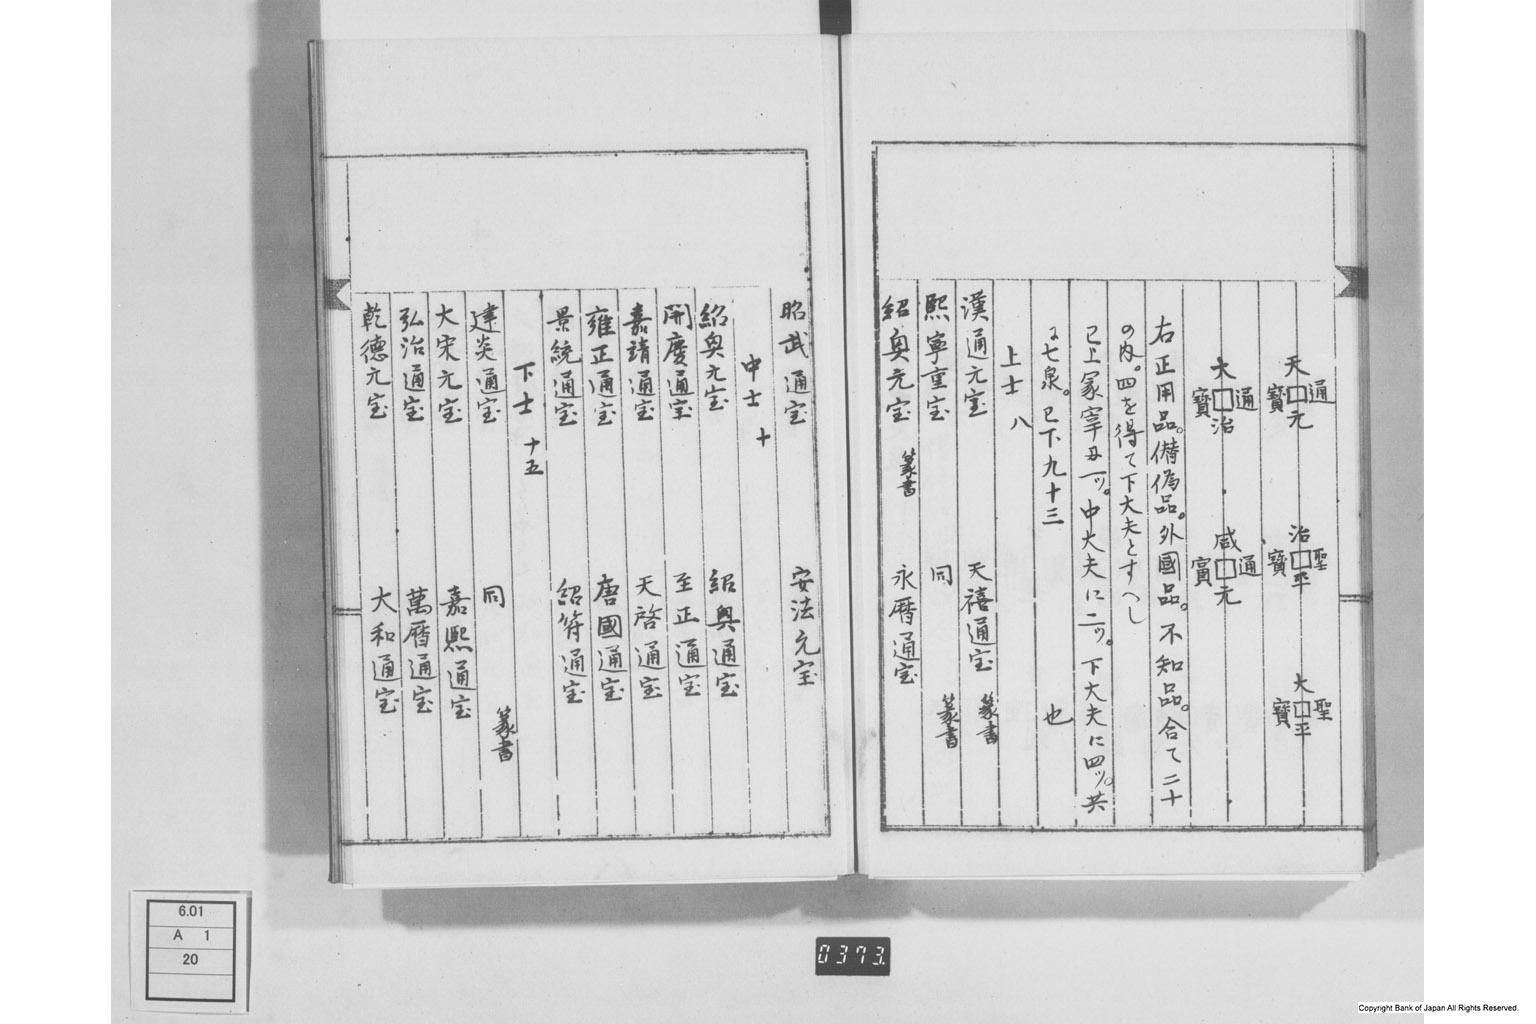 天□元通寳
治□平聖寳
大□平聖寳
大□治通寳
咸□元通寳
右正用品。備偽品。外國品。不知品。合て二十
の内。四を得て下大夫とすへし
已上冢宰に一ツ。中大夫に二ツ。下大夫に四ツ。共
に七泉。已下九十三 也
上士 八
漢通元宝 天禧通宝 篆書
熙寧重宝 同 篆書
紹興元宝 篆書 永暦通宝
昭武通宝 安法元宝
中士 十
紹興元宝 紹興通宝
開慶通宝 至正通宝
嘉靖通宝 天啓通宝
雍正通宝 唐國通宝
景統通宝 紹符通宝
下士 十五
建炎通宝 同 篆書
大宋元宝 嘉熙通宝
弘治通宝 萬暦通宝
乾德元宝 大和通宝
0373.
6.01
A 1
20
Copyright Bank of Japan All Rights Reserved.